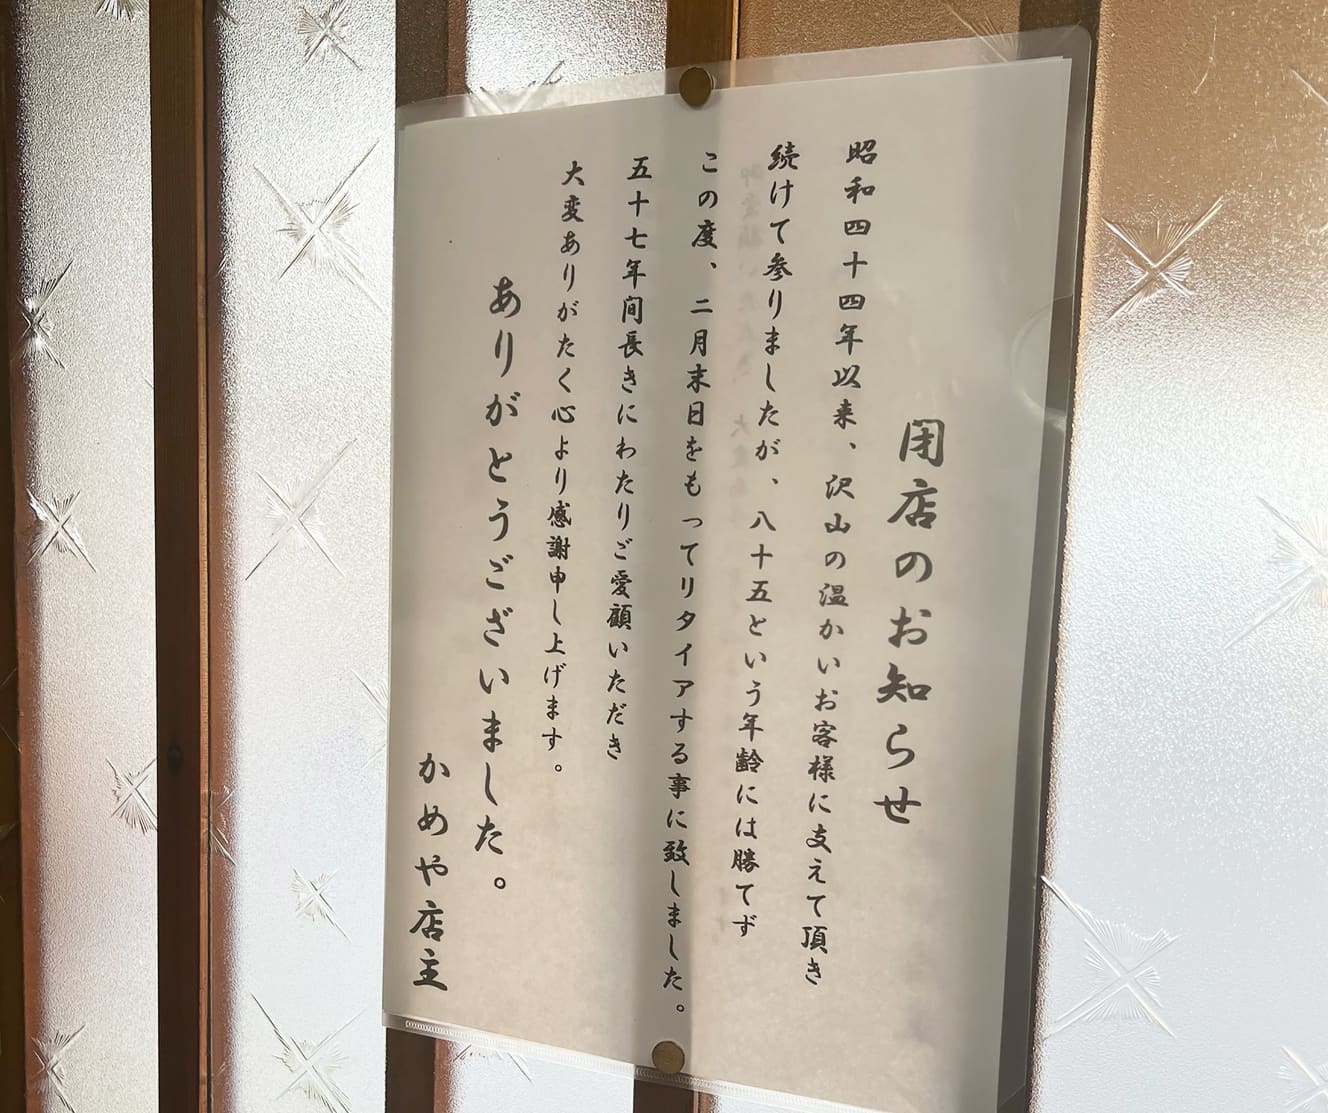 閉店のお知らせ
昭和四十四年以来、沢山の温かいお客様に支えて頂き
続けて参りましたが、八十五という年齢には勝てず
この度、二月末日をもってリタイアする事に致しました。
五十七年間長きにわたりご愛顧いただき
大変ありがたく心より感謝申し上げます。
ありがとうございました。
かめや店主